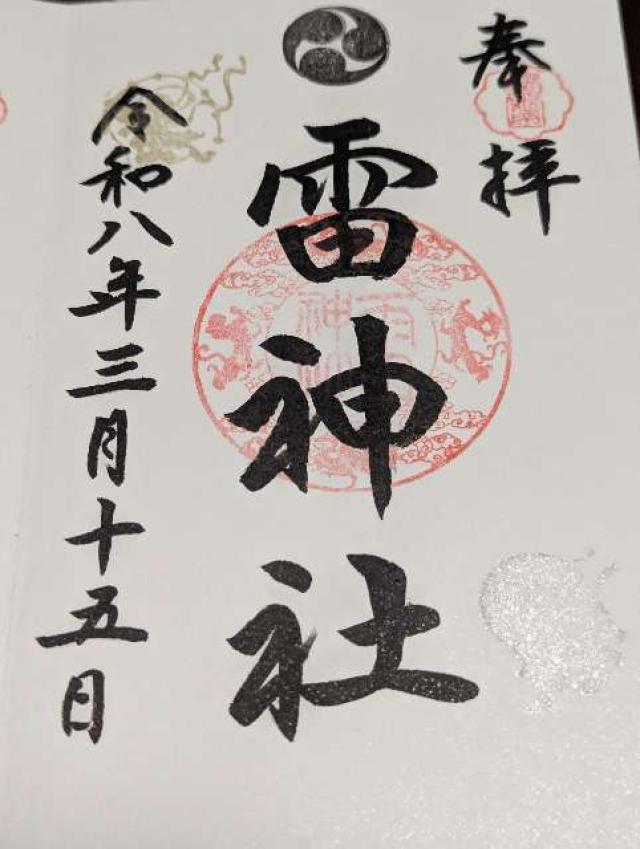 奉拝
雷神社
令和八年三月十五日